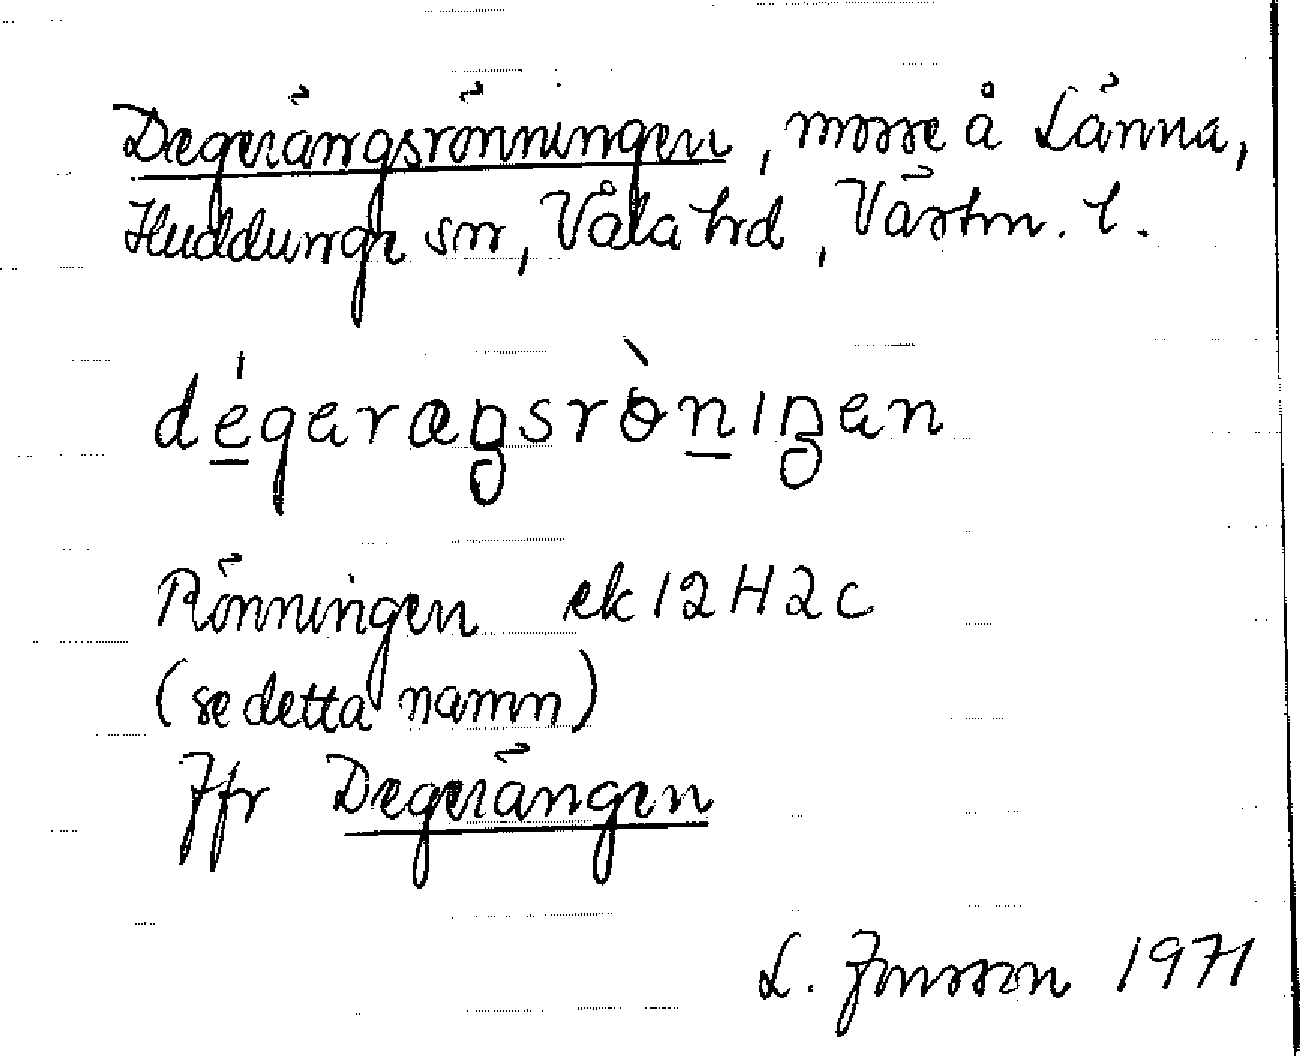 Degerängsrönningen, mosse å Länna,
Huddunge sn, Våla hd, Västm. l.
dégeræŋsrò̱niŋen
Rönningen ek 12H2c
(se detta namn)
Jfr Degerängen
L. Jonsson 1971